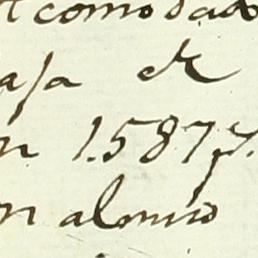 comodado
aja de
n 1.587 p.
n alonso